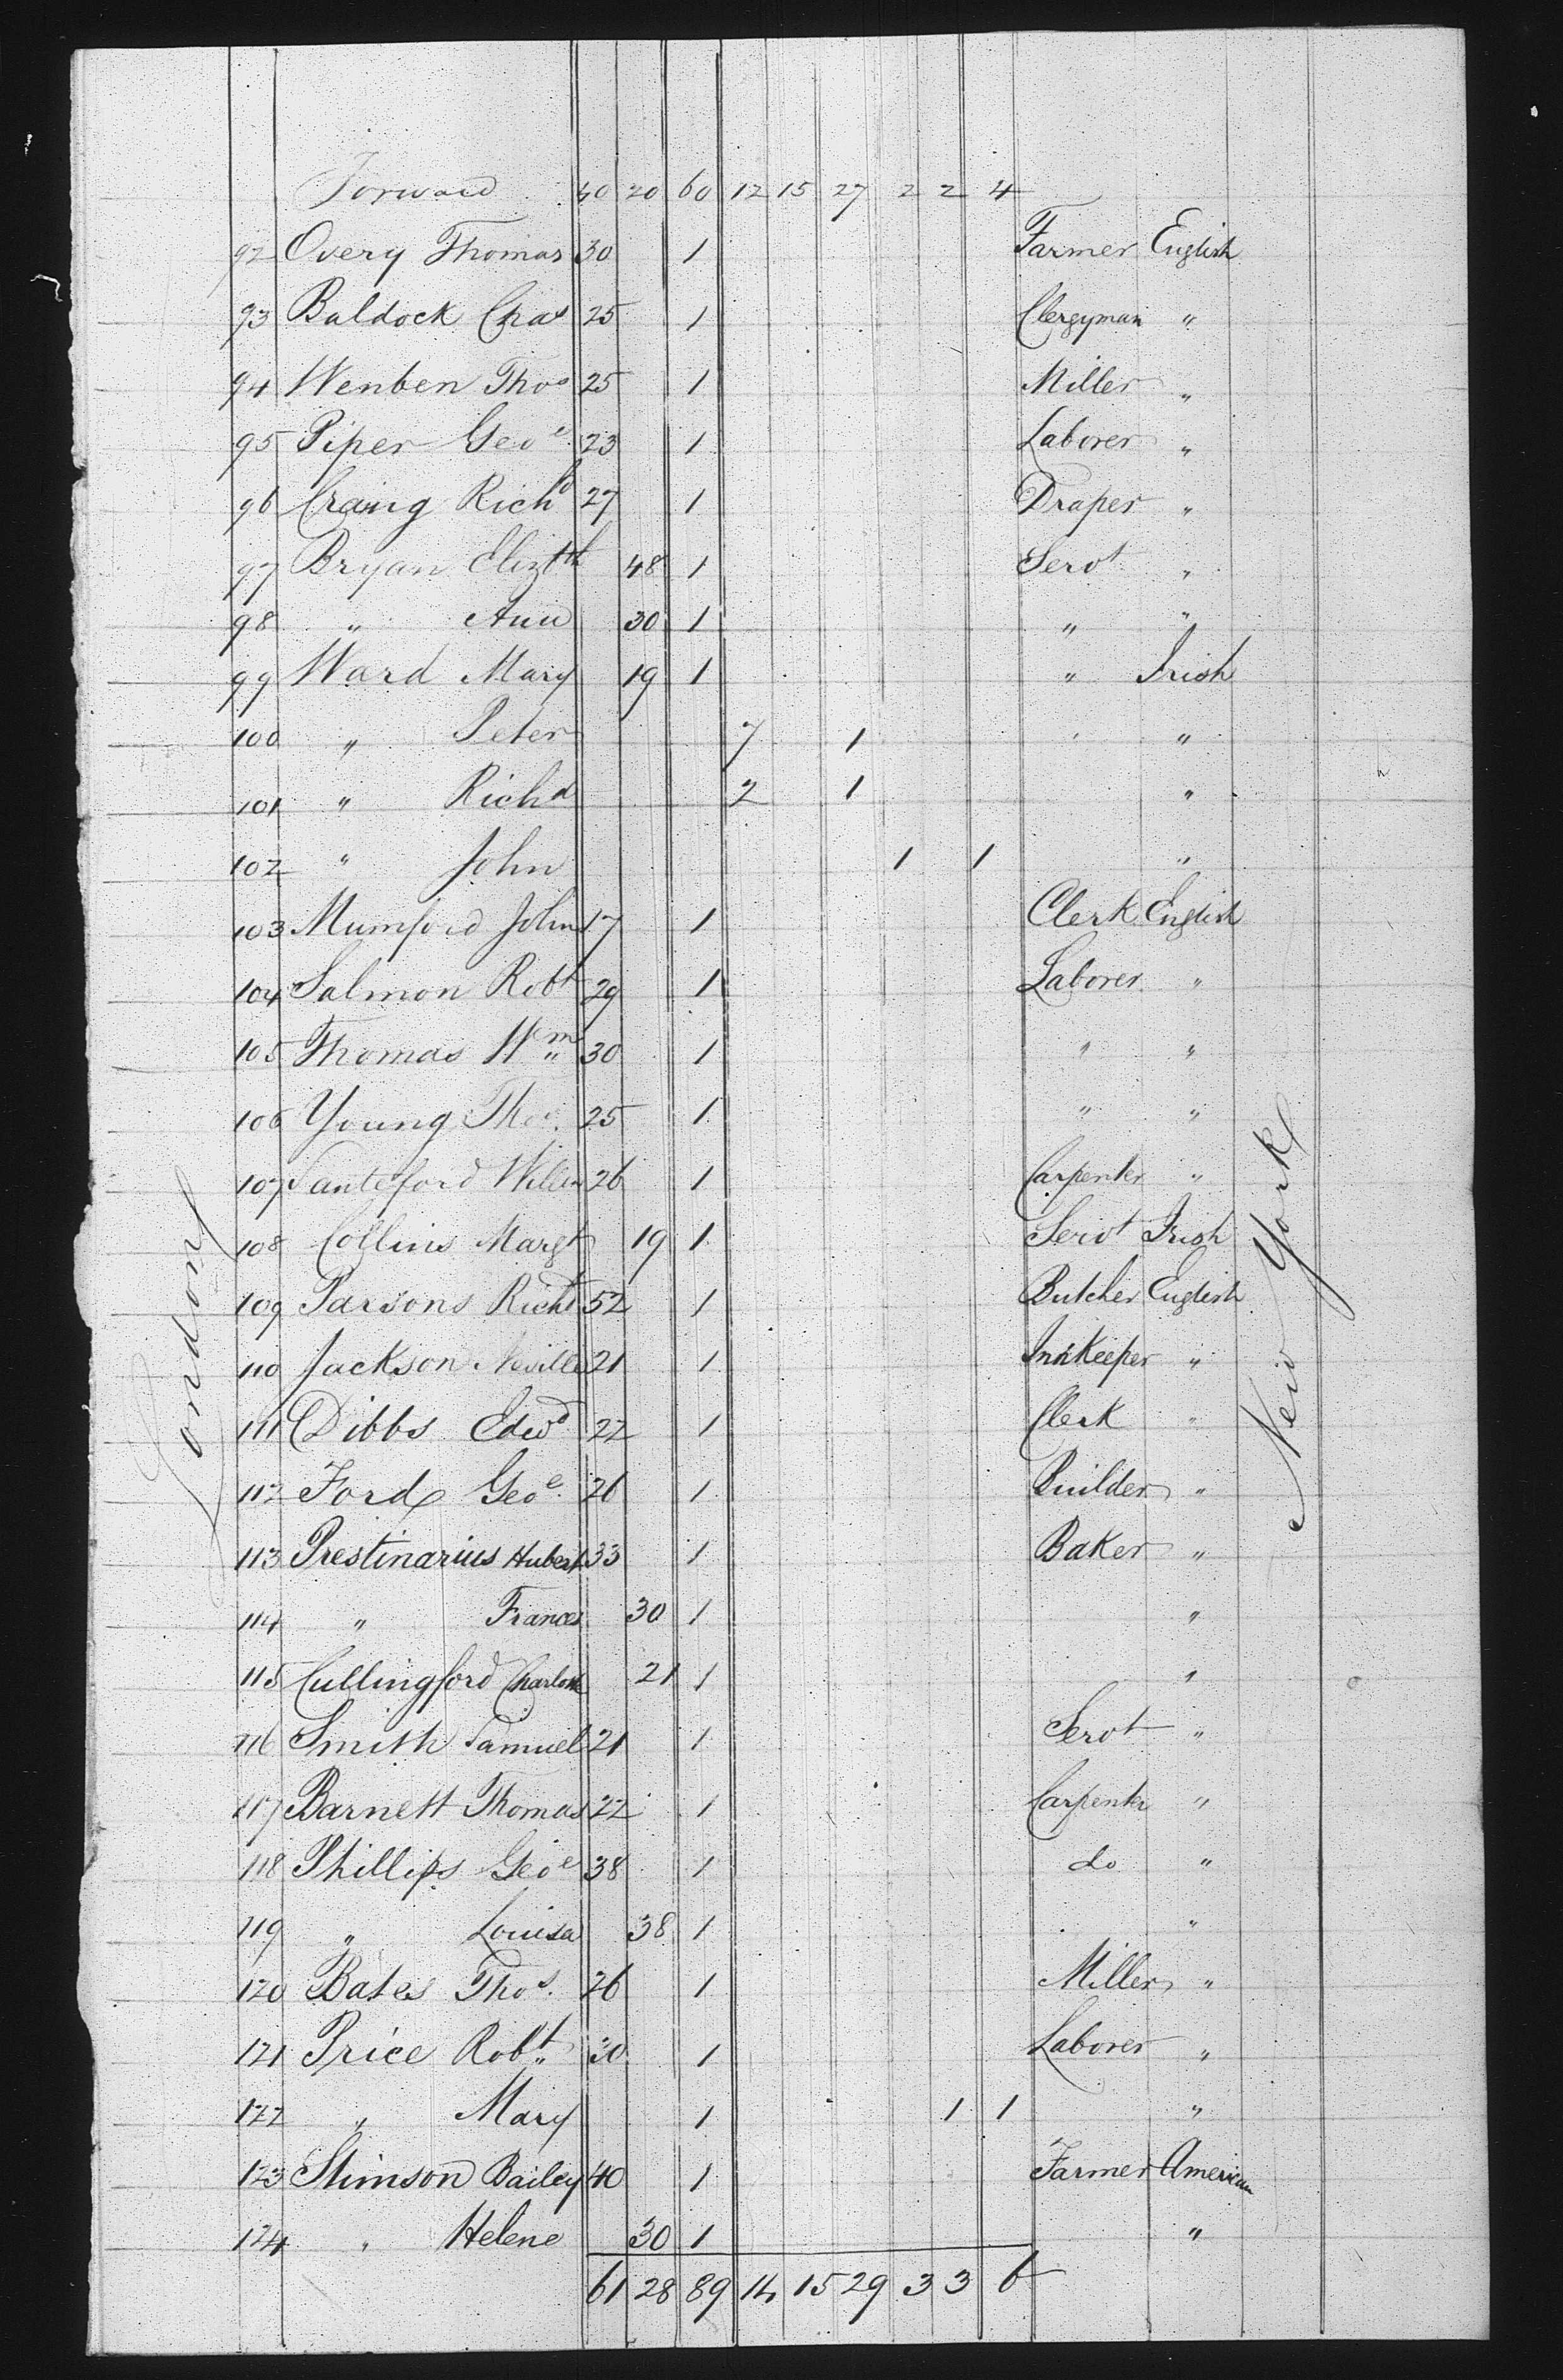 Forward 40 20 60 12 15 27 2 2 4
92 Overy Thomas 30 1 Farmer English
93 Baldock Chas 25 1 Clergyman "
94 Wenben Thos 25 1 Miller "
95 Piper Geoe 23 1 Laborer "
96 Craing Richd 27 1 Draper "
97 Bryan Elizth 48 1 Servt "
98 " Ann 30 1 " "
99 Ward Mary 19 1 " Irish
100 " Peter 7 1 "
101 " Richd 2 1 "
102 " John 1 1 "
103 Mumford John 17 1 Clerk English
104 Salmon Robt 29 1 Laborer "
105 Thomas Wm 30 1 " "
106 Young Thos. 25 1 " "
107 Willm 26 1 Carpenter "
108 Collins Margt 19 1 Servt Irish
109 Parsons Richd 52 1 Butcher English
110 Jackson Neville 21 1 InnKeeper "
111 Dibbs Edwd 22 1 Clerk "
112 Ford Geoe. 26 1 Builder "
113 Prestinarius Hubert 33 1 Baker "
114 " Frances 30 1 "
115 Cullingford Charlotte 21 1 "
116 Smith Samuel 21 1 Servt "
117 Barnett Thomas 22 1 Carpenter "
118 Phillips Geoe 38 1 do "
119 " Louisa 38 1 "
120 Bates Thos. 26 1 Miller "
121 Price Robt. 30 1 Laborer "
122 " Mary 1 1 1 "
123 Stimson Bailey 40 1 Farmer American
124 " Helene 30 1 "
61 28 89 14 15 29 3 3 6
London
New York